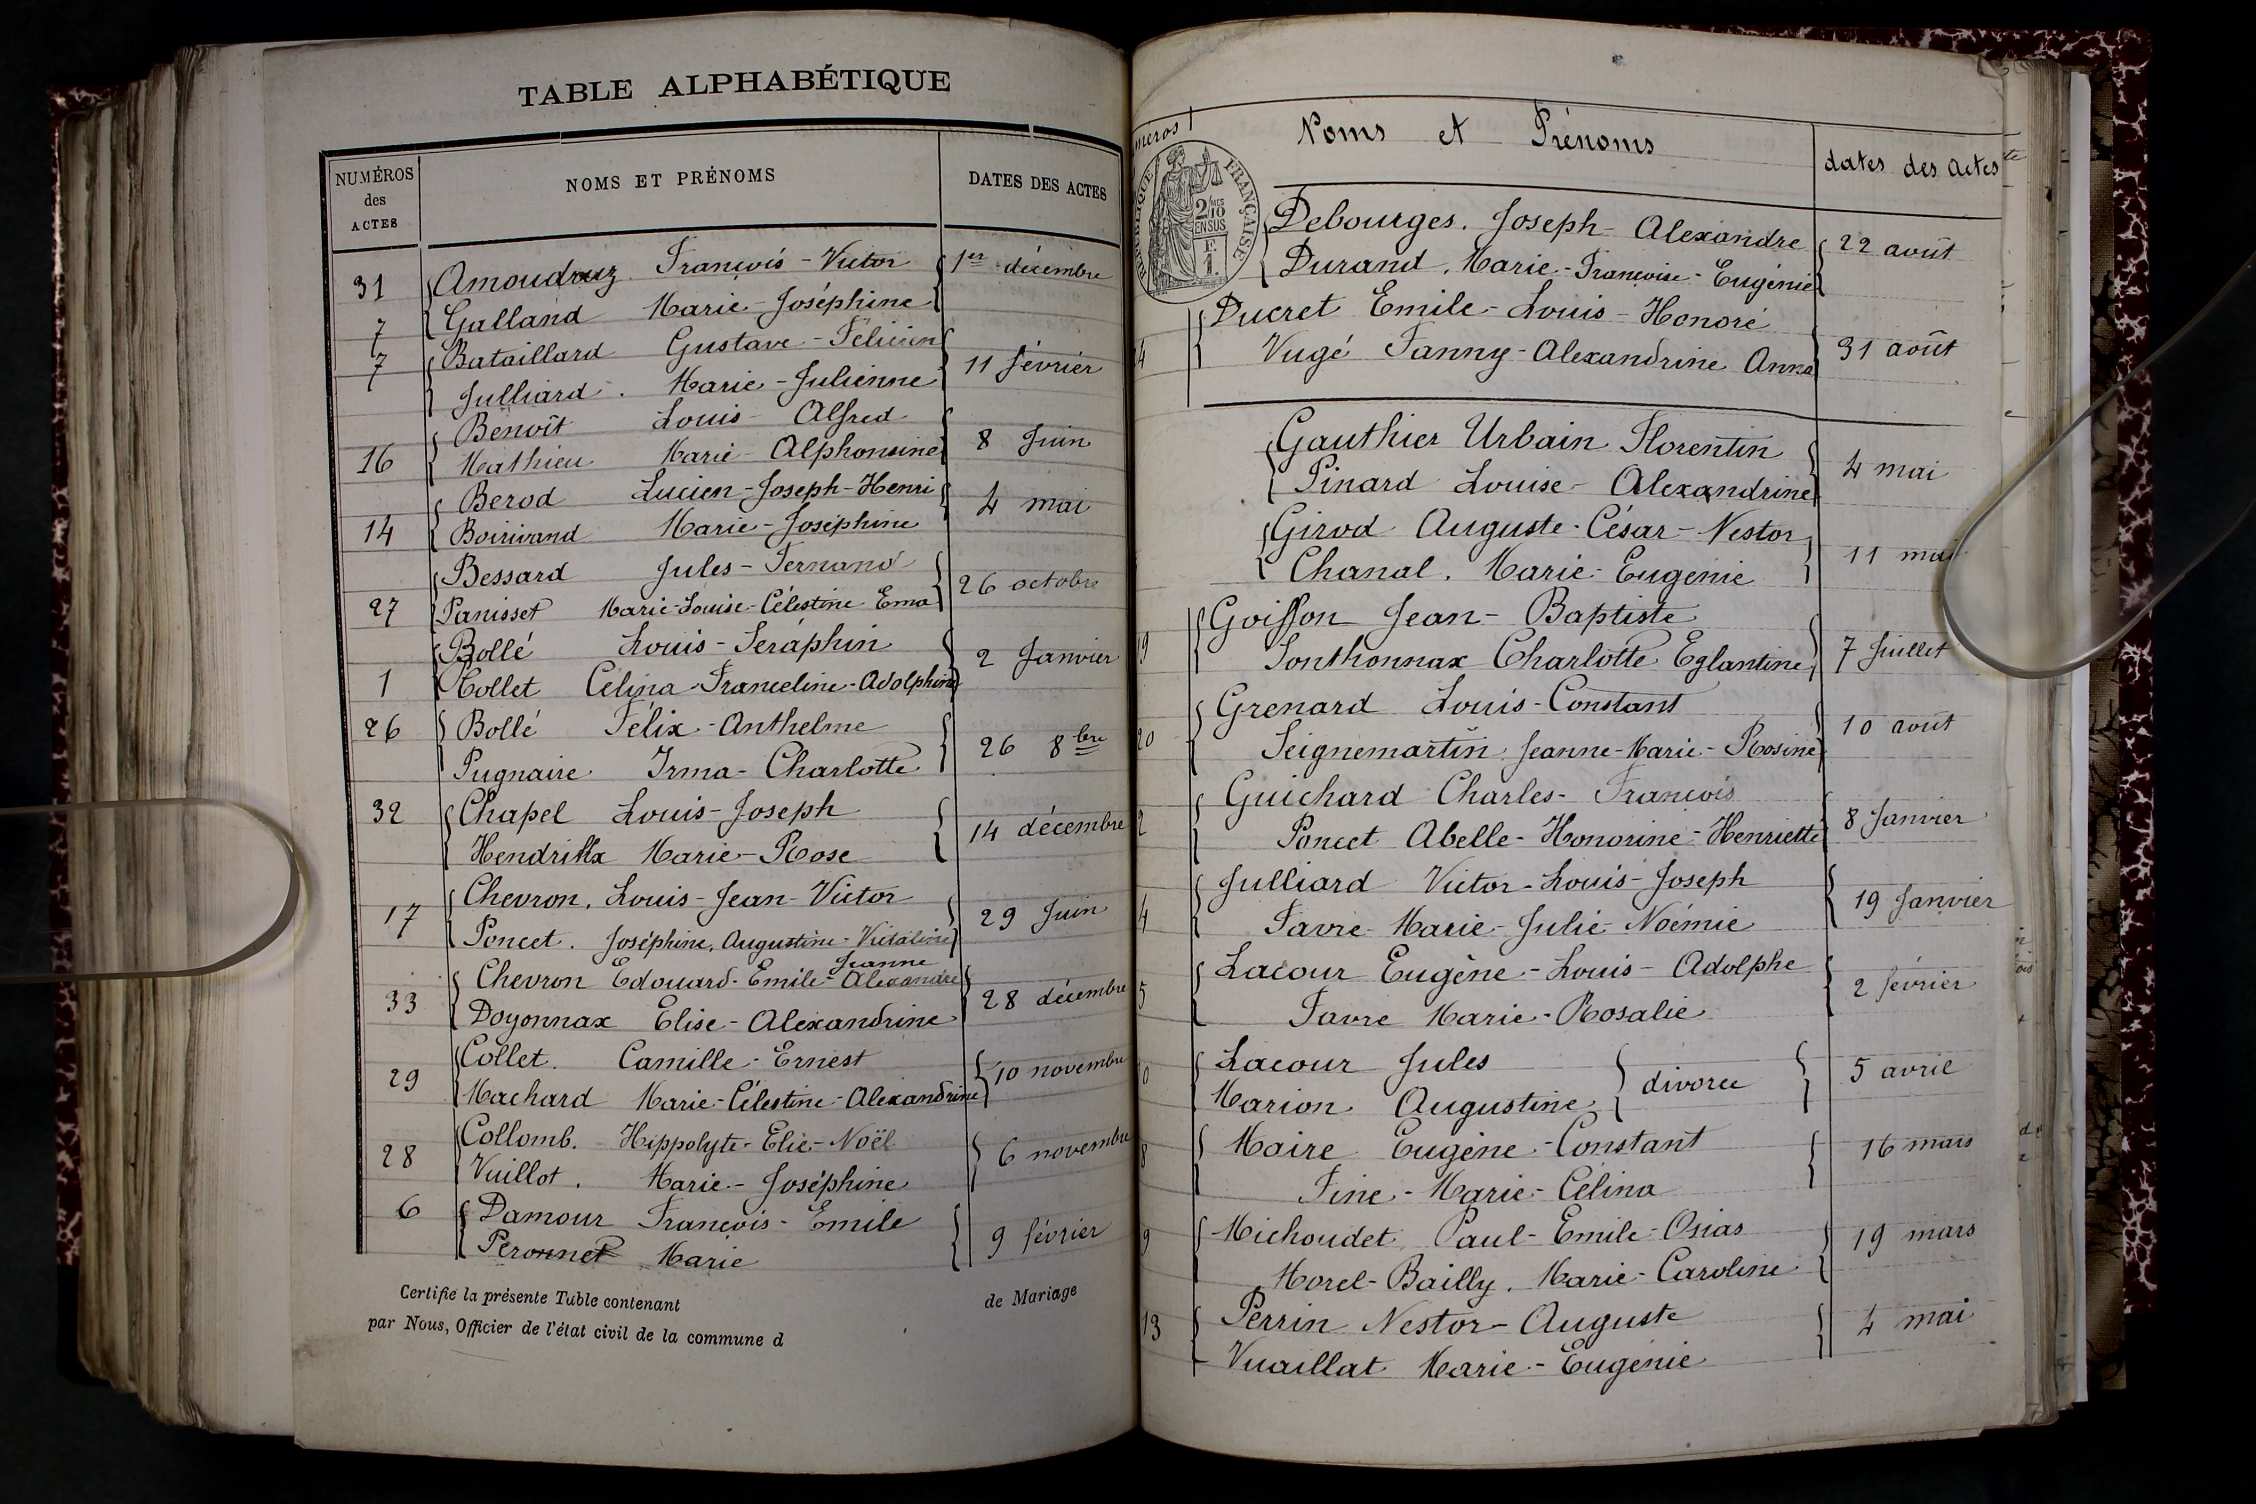 TABLE ALPHABÉTIQUE
NUMÉROS des ACTES NOMS ET PRÉNOMS DATES DES ACTES
31 Amoudruz François-Victor 1er décembre
Galland Marie-Joséphine
7
7 Bataillard Gustave-Félicien 11 février
Julliard. Marie-Julienne
Benoît Louis Alfred
16 Mathieu Marie-Alphonsine 8 Juin
Berod Lucien-Joseph-Henri 4 mai
14 Boirivand Marie-Joséphine
Bessard Jules-Fernand 26 octobre
27 Panisset Marie-Louise-Célestine Ema
Bollé Louis-Seraphin 2 Janvier
1 Collet Célina-Franceline-Adolphine
26 Bollé Félix-Anthelme 26 8bre
Pugnaire Irma-Charlotte
32 Chapel Louis-Joseph 14 décembre
Hendrikx Marie-Rose
Chevron, Louis-Jean-Victor
17 Poncet. Joséphine, Augustine-Victaline 29 Juin
Jeanne
Chevron Edouard-Emile-Alexandre
33 Doyonnax Elise-Alexandrine 28 décembre
Collet. Camille-Ernest 10 novembre
29 Machard Marie-Célestine-Alexandrine
Collomb. Hippolyte-Elie-Noël 6 novembre
28 Vuillot. Marie-Joséphine
6 Damour François-Emile 9 février
Peronnet Marie
Certifie la présente Table contenant de Mariage
par Nous, Officier de l'état civil de la commune d
meros Noms et Prénoms dates des actes
RÉPUBLIQUE FRANÇAISE
2/10 MES EN SUS
F. 1.
Debourges. Joseph-Alexandre 22 août
Durand, Marie-Françoise-Eugénie
Ducret Emile-Louis-Honoré
4 Vugé Fanny-Alexandrine Anna 31 août
Gauthier Urbain Florentin 4 mai
Pinard Louise-Alexandrine
Girod Auguste-César-Nestor 11 mai
Chanal, Marie-Eugenie
Goiffon Jean-Baptiste
9 Sonthonnax Charlotte Eglantine 7 Juillet
Grenard Louis-Constant 10 août
20 Seignemartin Jeanne-Marie-Rosine
Guichard Charles-François
2 Poncet Abelle-Honorine-Henriette 8 Janvier
Julliard Victor-Louis-Joseph 19 Janvier
4 Favre Marie-Julie-Noémie
Lacour Eugène-Louis-Adolphe
5 Favre Marie-Rosalie 2 février
0 Lacour Jules divorce 5 avril
Marion Augustine
8 Maire Eugène-Constant 16 mars
Fine-Marie-Célina
9 Michoudet Paul-Emile-Osias 19 mars
Morel-Bailly, Marie-Caroline
13 Perrin Nestor-Auguste 4 mai
Vuaillat Marie-Eugénie